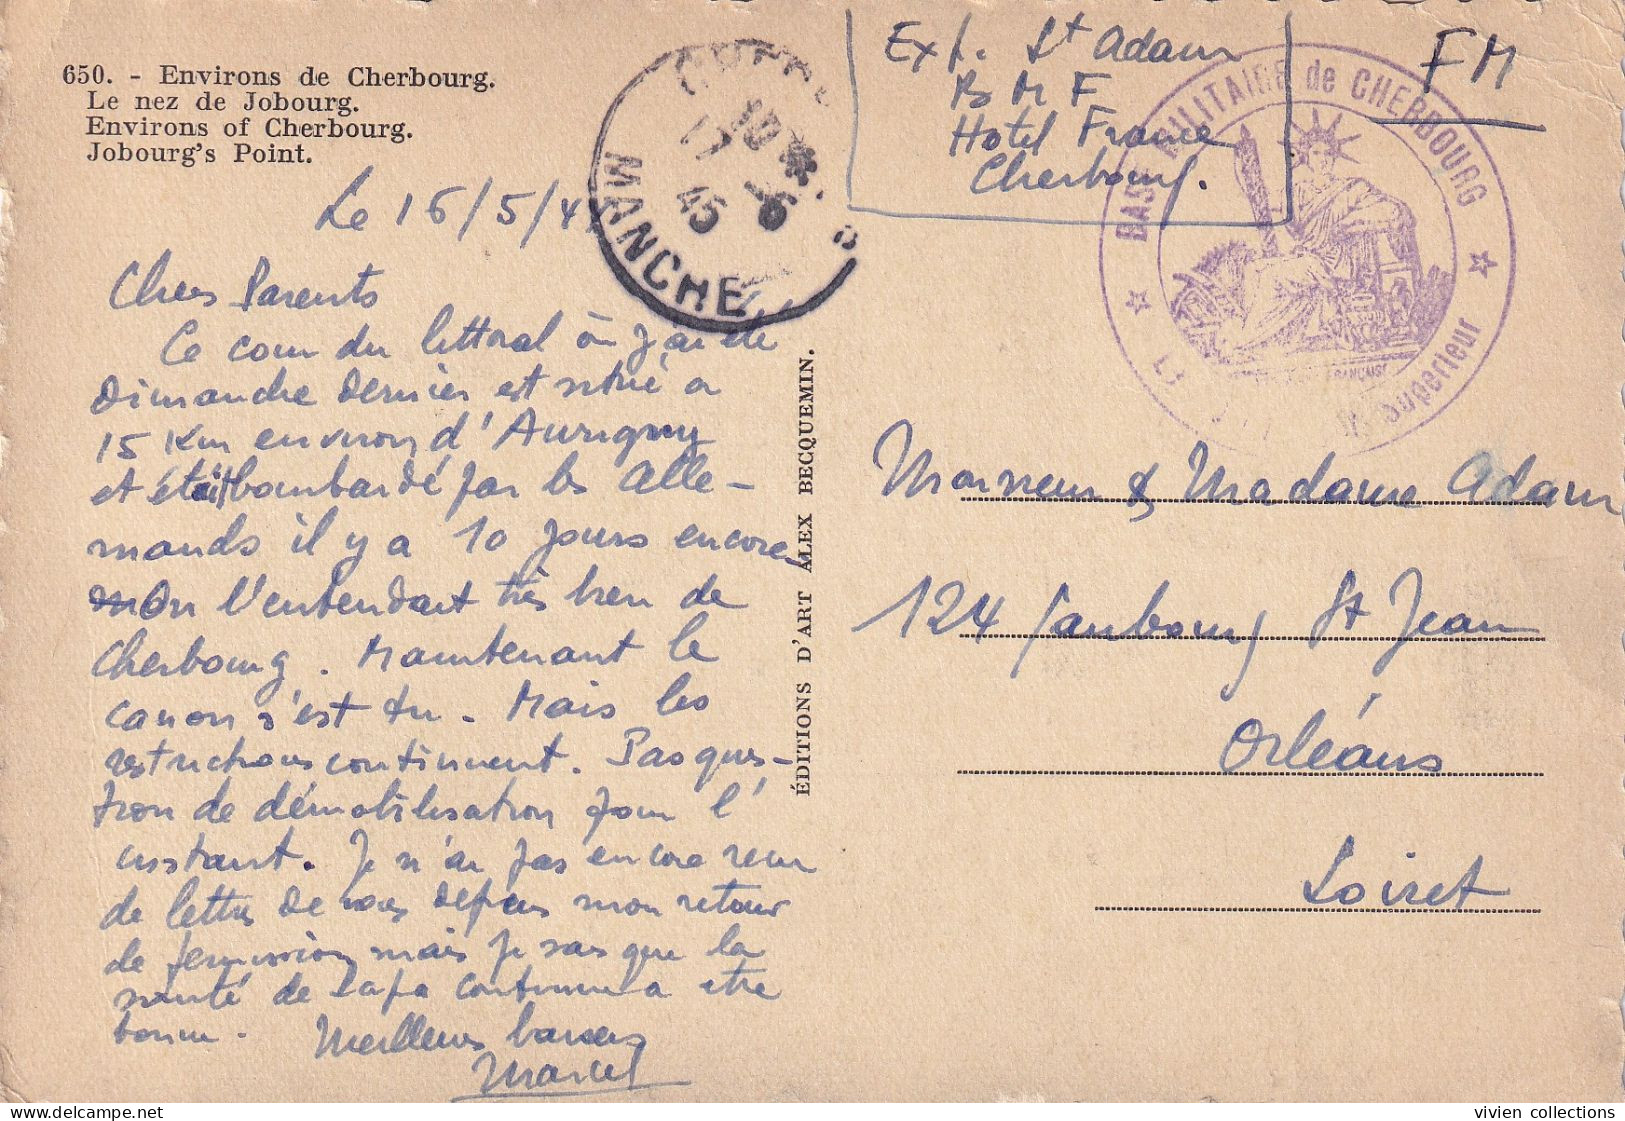 650. - Environs de Cherbourg.
Le nez de Jobourg.
Environs of Cherbourg.
Jobourg's Point.
Exp. Lt Adam
B M F
Hotel France
Cherbourg.
FM
BASE MILITAIRE de CHERBOURG
Supérieur
17 - 5
45
MANCHE
Le 16/5/45
Chers Parents
Ce coin du littoral où j'ai été
dimanche dernier est situé à
15 Km environ d'Aurigny
et était bombardé par les Alle-
mands il y a 10 jours encore
On l'entendait très bien de
Cherbourg. Maintenant le
canon s'est tu. Mais les
restrictions continuent. Pas ques-
tion de démobilisation pour l'
instant. Je n'ai pas encore reçu
de lettre de vous depuis mon retour
de permission mais je sais que la
santé de Papa continue à être
bonne. Meilleurs baisers
Marcel
ÉDITIONS D'ART ALEX BECQUEMIN.
Monsieur & Madame Adam
124 faubourg St Jean
Orléans
Loiret
vivien collections